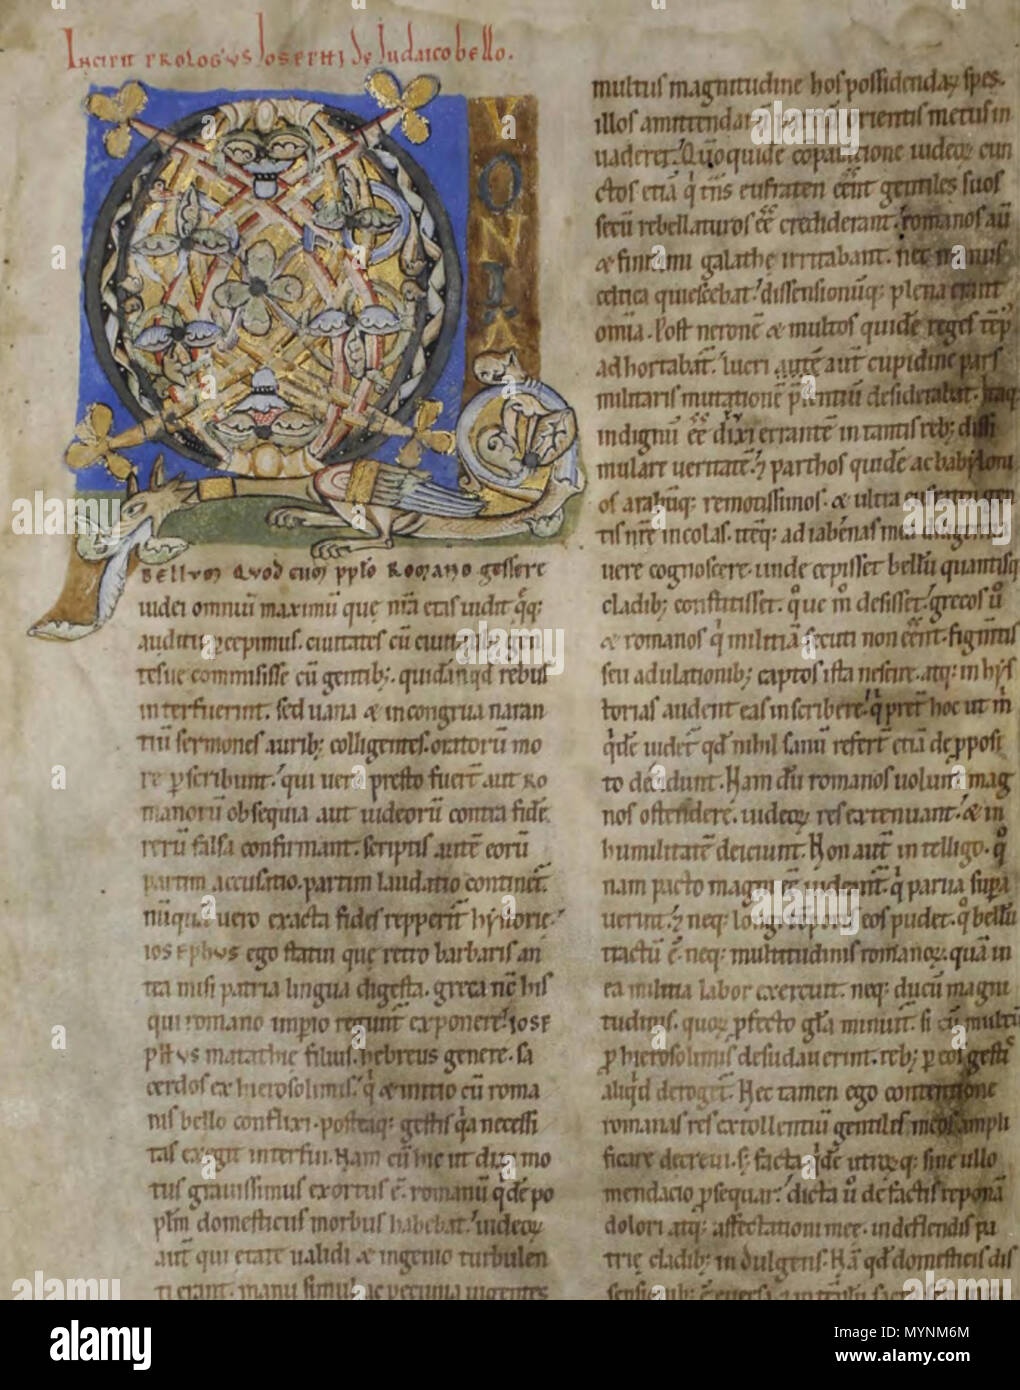 Incipit prologus Iosephi de Iudaico bello.
Q
VONIA
bellum quod cum pplo Romano gessere
iudei omniū maximū que nr̄a etas uidit q̄q;
auditu p̄cepimus. ciuitates cū ciuitatib; gen
tesue commisisse cū gentib;. quidā nqd rebus
interfuerint. sed uana & incongrua narran
tiū sermones aurib; colligentes. oratorū mo
re p̄scribunt. qui uero presto fuer̄t aut Ro
manorū obsequia aut iudeorū contra fidē
rerū falsa confirmant. scriptis autē eorū
partim accusatio. partim laudatio continet̄.
nūquā uero exacta fides repperit̄ hystorie.
iosephus ego statui que retro barbaris an
tea misi patria lingua digesta. greca nc̄ his
qui romano imperio regunt̄ exponere. iose
phus matathie filius. hebreus genere. sa
cerdos ex hierosolimis. q̇ & initio cū roma
nis bello conflixi. posteaq; gestis q̇a necessi
tas exegit interfui. Nam cū hic ut dixi mo
tus grauissimus exortus ē. romanū q̇dē po
plm̄ domesticus morbus habebat. iudeoꝝ
aut̄ qui etate ualidi & ingenio turbulen
ti erant. manu simul ac pecunia uigentes
multus magnitudine hos possidendaꝝ spes.
illos amittendaꝝ partiū orientis metus in
uaderet. Quoquidē
ctos etiā q̇ trans eufraten eēnt gentiles suos
secū rebellaturos eē crediderant. romanos aū
& finitimi galathe irritabant. nec minus
celtica quiescebat. dissensionūq; plena erant
omia. Post neronē & multos quidē reges tēp̄
adhortabat̄. lucri autē aut̄ cupidine pars
militaris mutationē p̄sentiū desiderabat. Itaq;
indignū eē dixi errantē in tantis reb; dissi
mulare ueritatē. & parthos quidē ac babyloni
os arabūq; remotissimos. & ultra eufraten gen
tis nr̄e incolas. itēq; adiabenas mea diligentia
uere cognoscere. unde cepisset bellū quantisq;
cladib; constitisset. quo
& romanos q̇ militiā secuti non eēnt. figmtis
seu adulationib; captos ista nescire. atq; in hys
torias audent eas inscribere.
q̇dē uidet̄ qd nihil sanū refert̄ etiā de p̄posi
to decidunt. Nam dū romanos uolunt mag
nos ostendere. iudeoꝝ res extenuant. & in
humilitatē deiciunt. Non aut̄ intelligo. q̊
nam pacto magni eē uideant̄. q̇ parua supa
uerint. & neq; longi temporis eos pudet. q̊ bellū
tractū ē. neq; multitudinis romanoꝝ. quā in
ea militia labor exercuit. neq; ducū magni
tudinis. quoꝝ p̄fecto gl̄a minuit̄. si cū multū
p̄ hierosolimis desudauerint. reb; p̄ eos gestis
aliqd̄ deroget̄. Nec tamen ego contentione
romanas res extollentiū gentiles meos ampli
ficare decreui. s; facta q̇dē utroꝝq; sine ullo
mendacio p̄sequar. dicta ū de factis reponā
dolori atq; affectationi mee. in deflendis pa
trie cladib; indulgens. Nā qd̄ domesticis dis
alamy
Image ID: MYNM6M
www.alamy.com